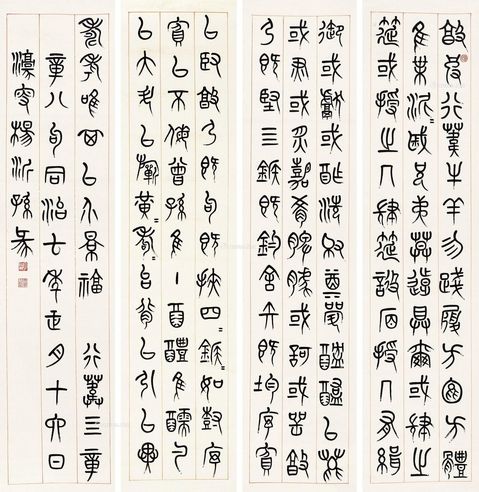 敦彼行葦牛羊勿踐履方苞方體
維葉泥〻戚〻兄弟莫遠具爾或肆之
筵或授之几肆筵設席授几有緝
御或獻或酢洗爵奠斝醓醢以薦
或燔或炙嘉肴脾臄或歌或咢敦
弓既堅四鍭既鈞舍矢既均序賓
以賢敦弓既句既挾四〻鍭〻如樹序
賓以不侮曾孫維主酒醴維醹酌
以大斗以祈黃〻耇〻台背以引以翼
壽考唯祺以介景福 行葦三章
章八句同治年月十六日
濠叟楊沂孫篆